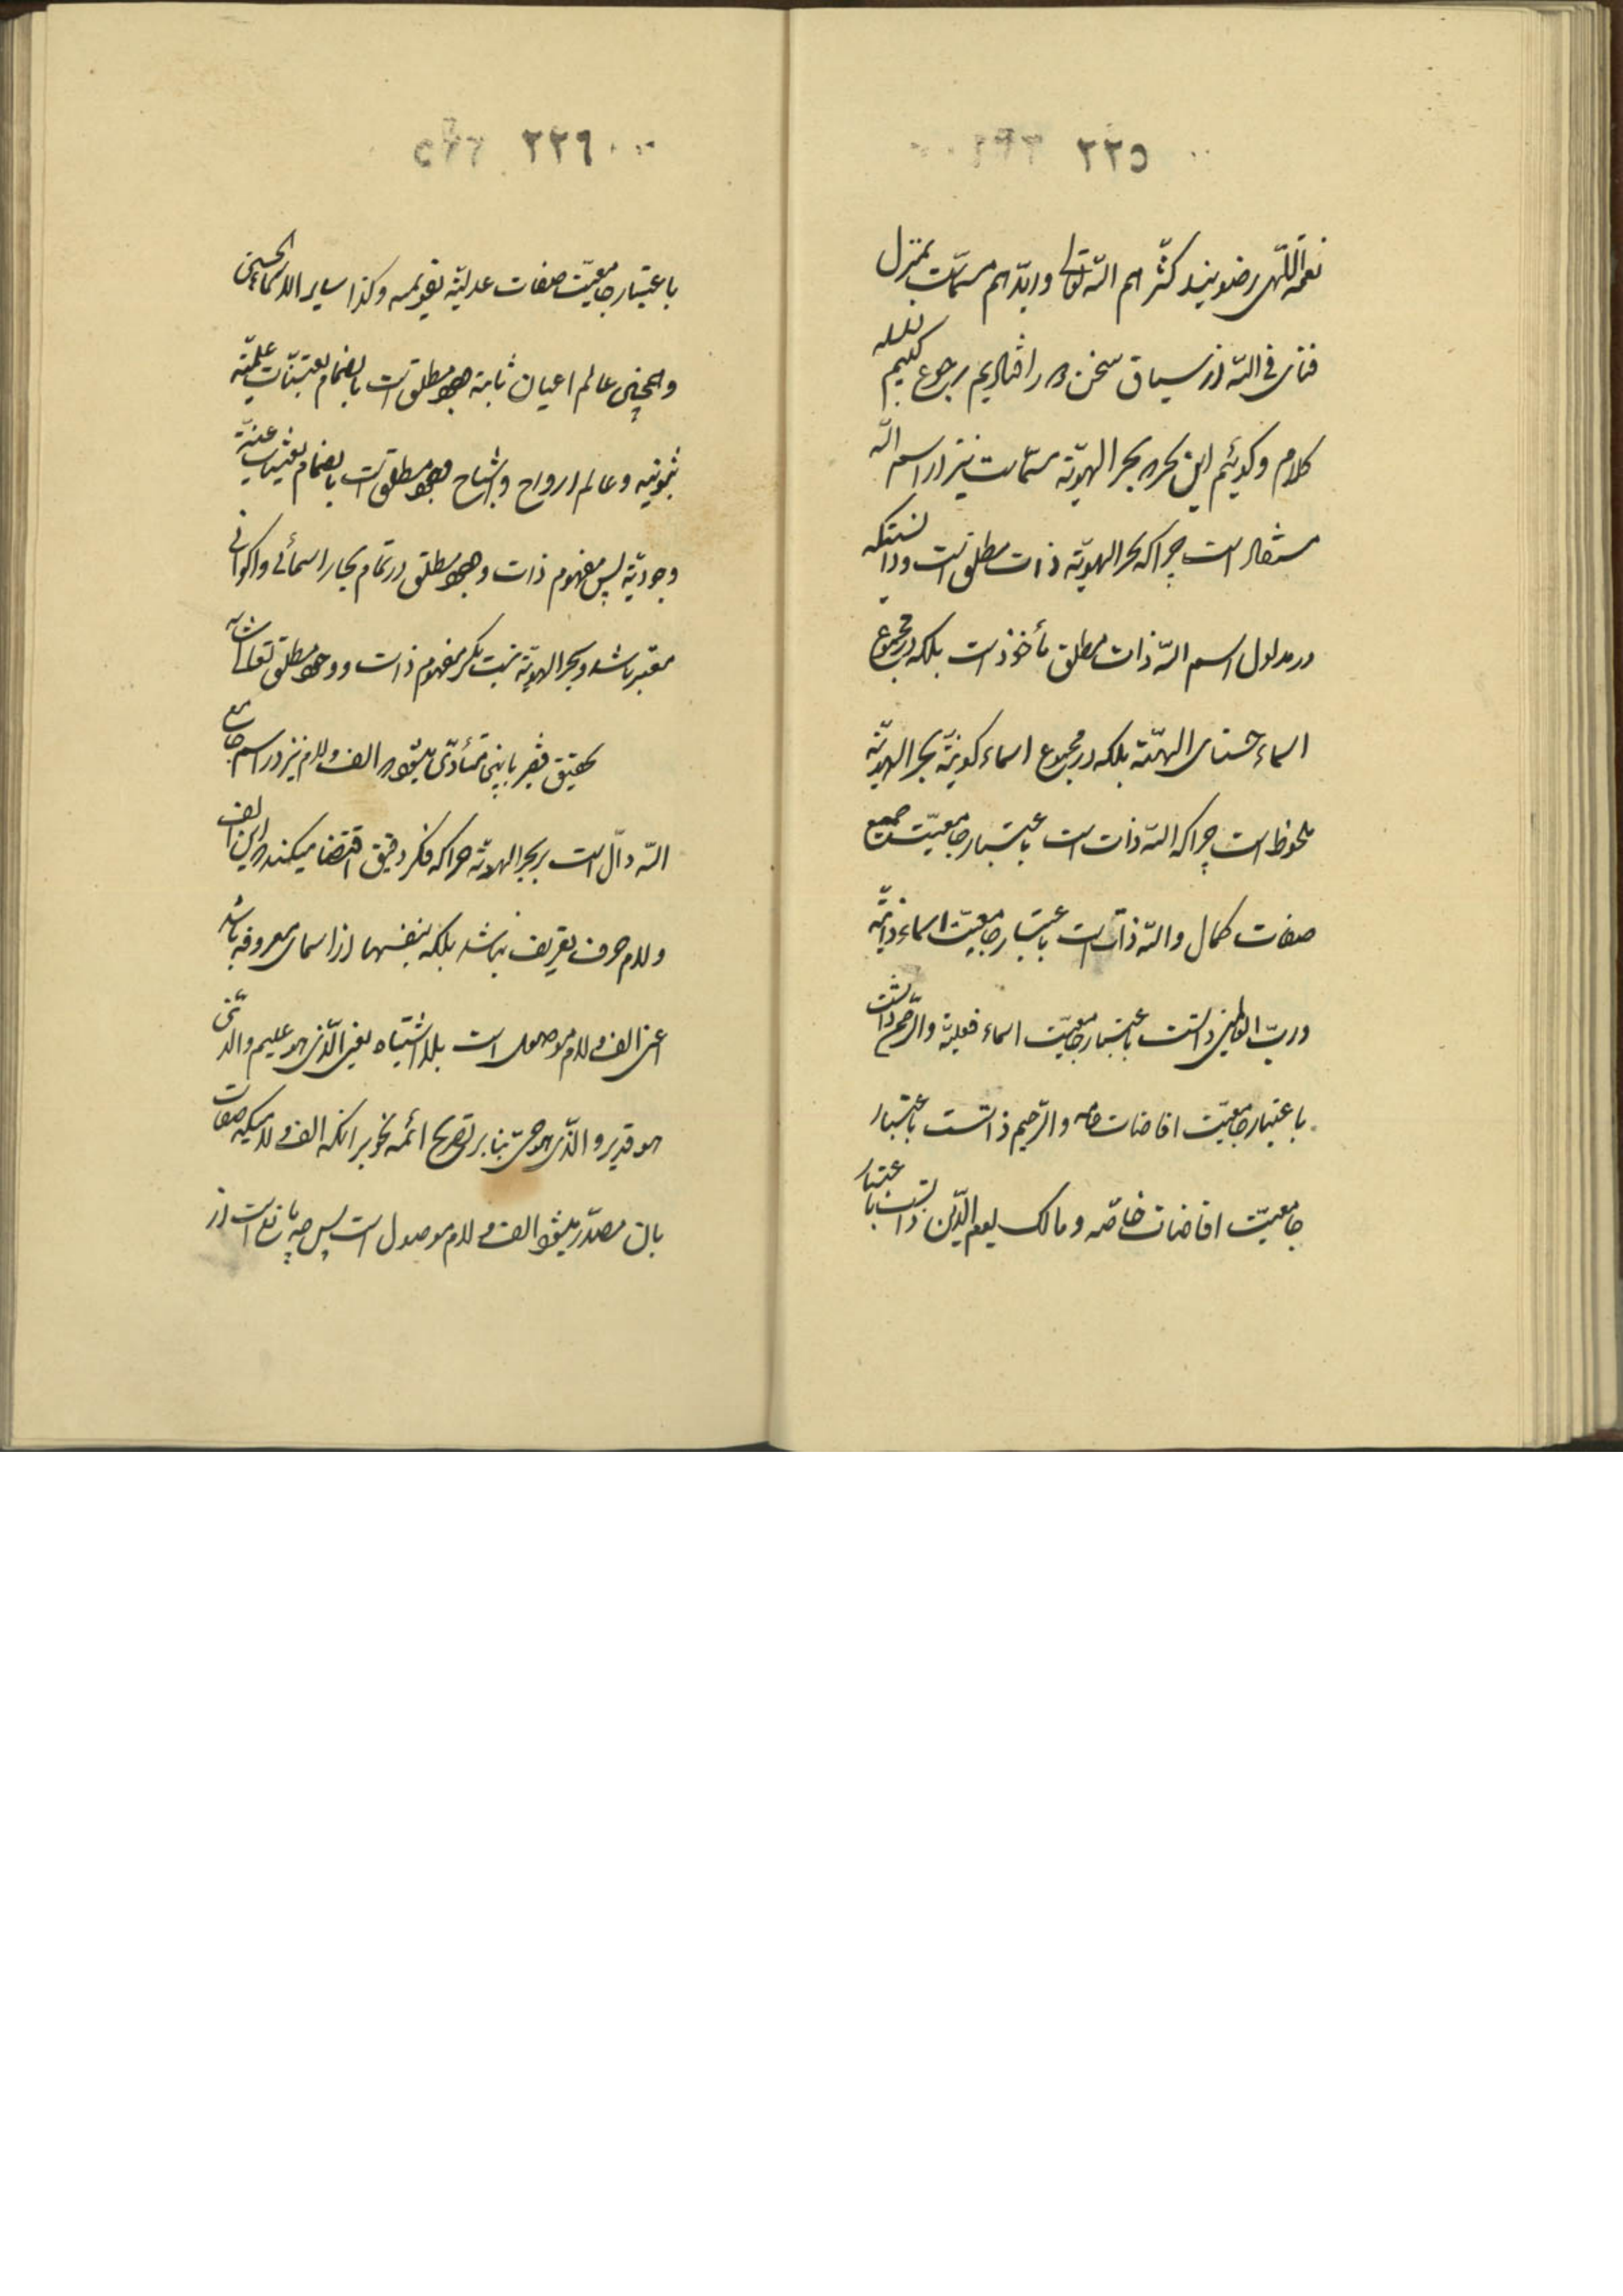 ٢٢٥
نعمة اللّهی رضویند کثّر اللّه تعالی و ایّدهم مسمّات بمنزل
فنای فی اللّه از سیاق سخن دور افتادیم رجوع کنیم بسلسله
کلام و گوئیم این بحر که بحر الهویّة مسمّات نیز از اسم اللّه
مستفاد است چرا که بحر الهویّة ذات مطلق است و دانستیکه
در مدلول اسم اللّه ذات مطلق مأخوذ است بلکه در مجموع
اسماء حسنای الهیّة بلکه در مجموع اسماء کونیّة بحر الهویّة
ملحوظ است چرا که اللّه ذات است باعتبار جامعیّت جمیع
صفات کمال و اللّه ذات است باعتبار جامعیّت اسماء ذاتیّة
و ربّ العالمین ذاتست باعتبار جامعیّت اسماء فعلیّة و الرّحمن ذاتست
باعتبار جامعیّت افاضات عامه و الرّحیم ذاتست باعتبار
جامعیّت افاضات خاصّه و مالک یوم الدّین ذاتست باعتبار
٢٢٦
باعتبار جامعیّت صفات عدلیّه تقویمیه و کذا سایر الاسماء الحسنی
و همچنین عالم اعیان ثابتة وجود مطلق است بانضمام تعیّنات علمیّه
ثبوتیه و عالم ارواح و اشباح وجود مطلق است بانضمام تعیّنات عینیّه
وجودیّة پس مفهوم ذات و وجود مطلق در تمام بحار اسمائی و اکوانی
معتبر باشد و بحر الهویّة نیست مگر مفهوم ذات و وجود مطلق تعالی شانه
تحقیق فقیر باینجا متأدّی میشود که الف و لام نیز در اسم جامع
اللّه دالّ است بر بحر الهویّه چرا که فکر دقیق اقتضا میکند که این الف
و لام حرف تعریف نباشد بلکه بنفسها از اسمای معروفه باشد
اعنی الف و لام موصول است بلا اشتباه یعنی الّذی هو علیم و الّذی
هو قدیر و الّذی هو حیّ بنا بر تصریح ائمه نحو بر آنکه الف و لامیکه صفات
بان مصدّر میشود الف و لام موصول است پس چه مانع است از